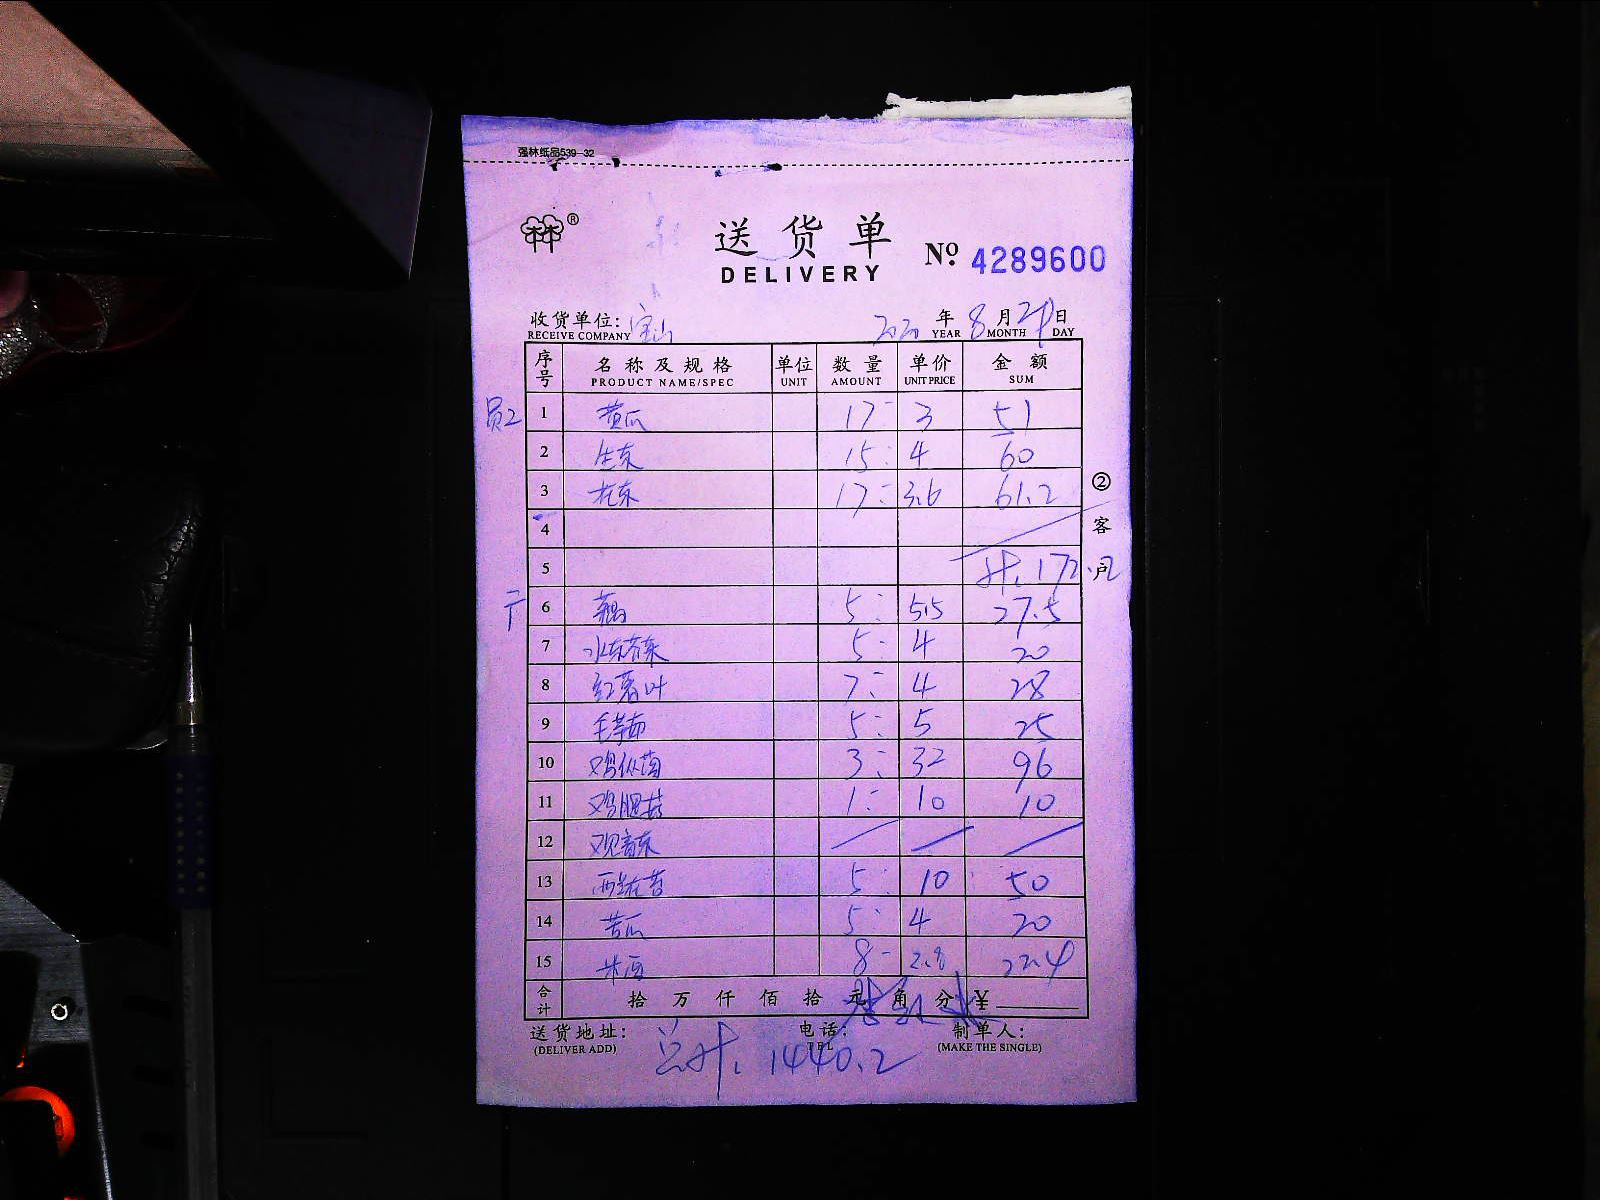 强林纸品539-32
林林®
送货单
DELIVERY
№ 4289600
收货单位: 宝山 2020 年 8 月 29 日
RECEIVE COMPANY YEAR MONTH DAY
序号 名称及规格 单位 数量 单价 金额
PRODUCT NAME/SPEC UNIT AMOUNT UNIT PRICE SUM
员2 1 黄瓜 17 3 51
2 生菜 15 4 60
3 花菜 17 3.6 61.2
4
5 计. 172.2
6 藕 5 5.5 27.5
7 水东芥菜 5 4 20
8 红薯叶 7 4 28
9 毛芋苗 5 5 25
10 鸡枞菌 3 32 96
11 鸡腿菇 1 10 10
12 观音菜
13 5 10 50
14 苦瓜 5 4 20
15 8 2.8 22.4
合计 拾 万 仟 佰 拾 元 角 分 ¥
② 客户
送货地址: 电话: 制单人:
(DELIVER ADD) TEL (MAKE THE SINGLE)
总计. 1440.2